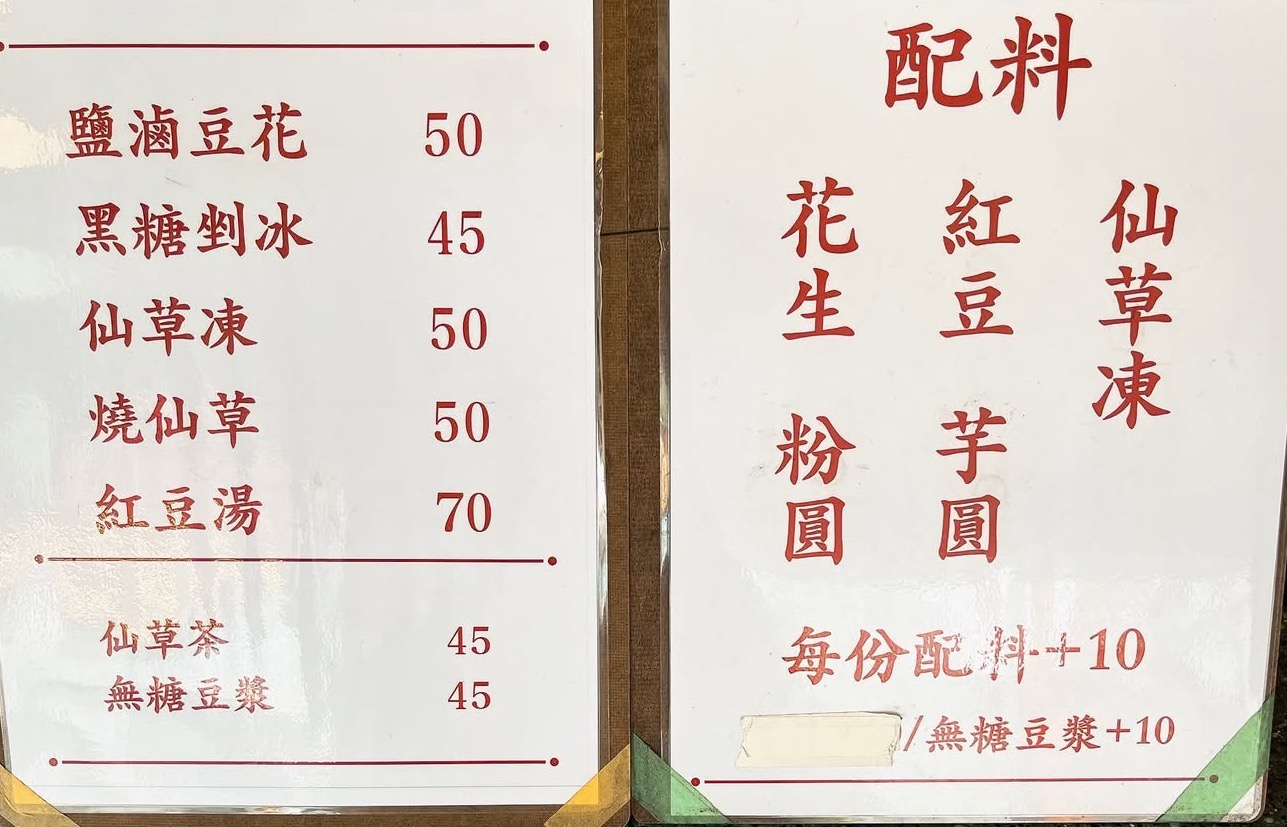 鹽滷豆花 50
黑糖剉冰 45
仙草凍 50
燒仙草 50
紅豆湯 70
仙草茶 45
無糖豆漿 45
配料
仙草凍
紅豆 芋圓
花生 粉圓
每份配料+10
/無糖豆漿+10